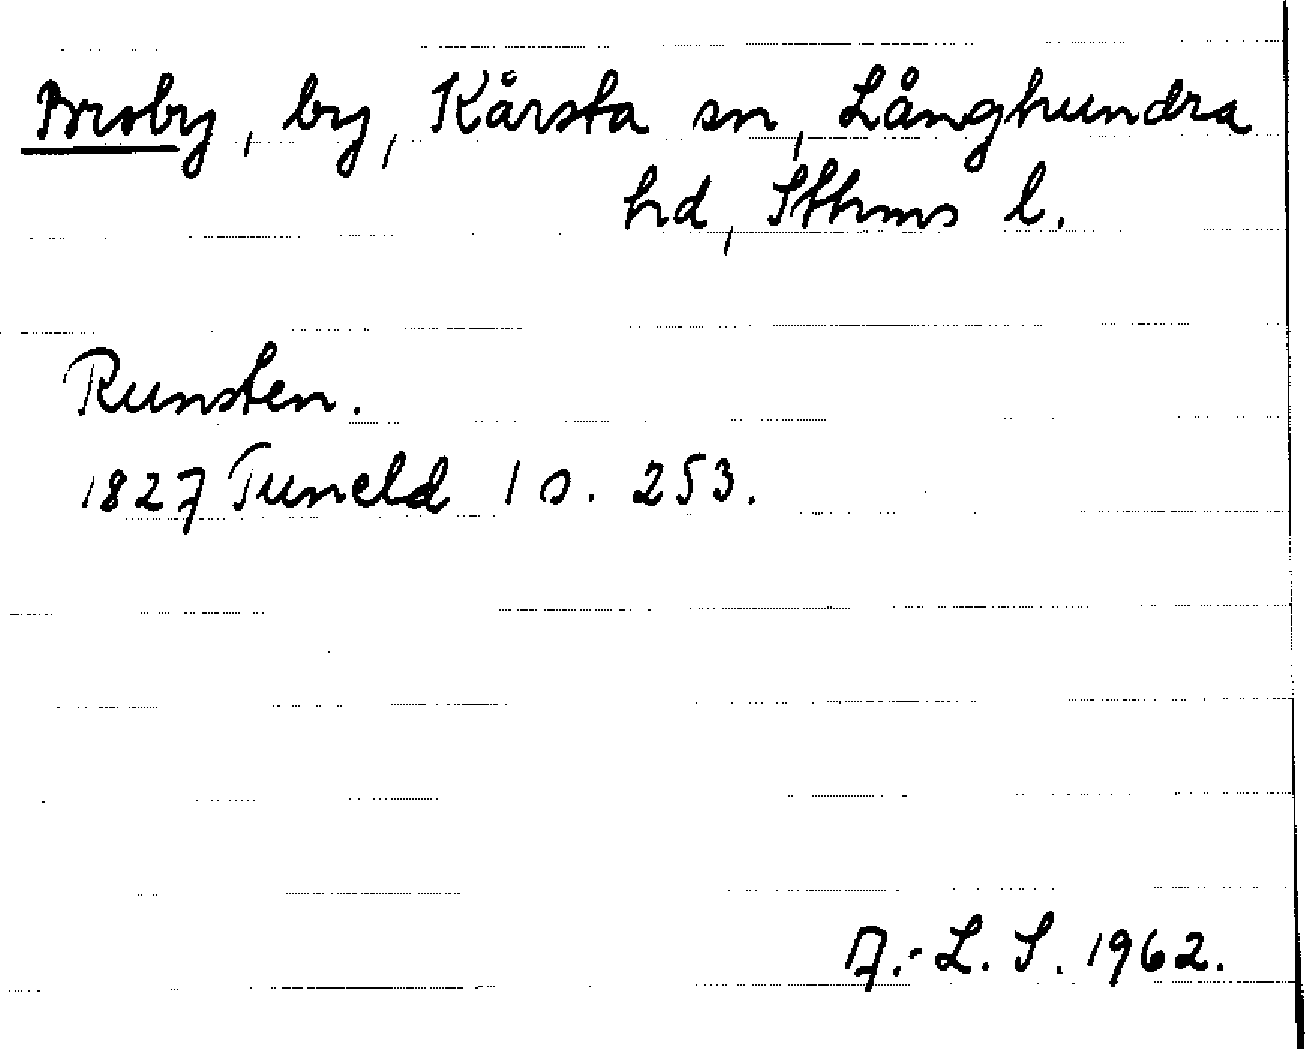 Broby, by, Kårsta sn, Långhundra
hd, Sthms l.
Runsten.
1827 Tuneld 1 s. 253.
A.-L. S. 1962.